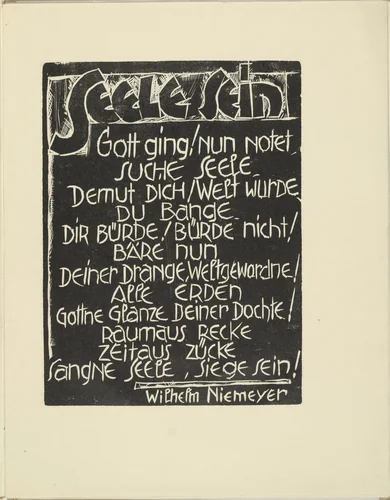 SEELE SEIN
Gott ging! Nun notet
SUCHE SEELE
Demut DICH/Welt wurde
DU Bange
Dir BÜRDE! BÜRDE nicht!
BÄRE nun
Deiner Drange, Weltgewordne!
Alle ERDEN
Gottne Glänze Deiner Dochte!
Raumaus RECKE
Zeitaus ZÜCKE
Sangne Seele, Siege sein!
Wilhelm Niemeyer